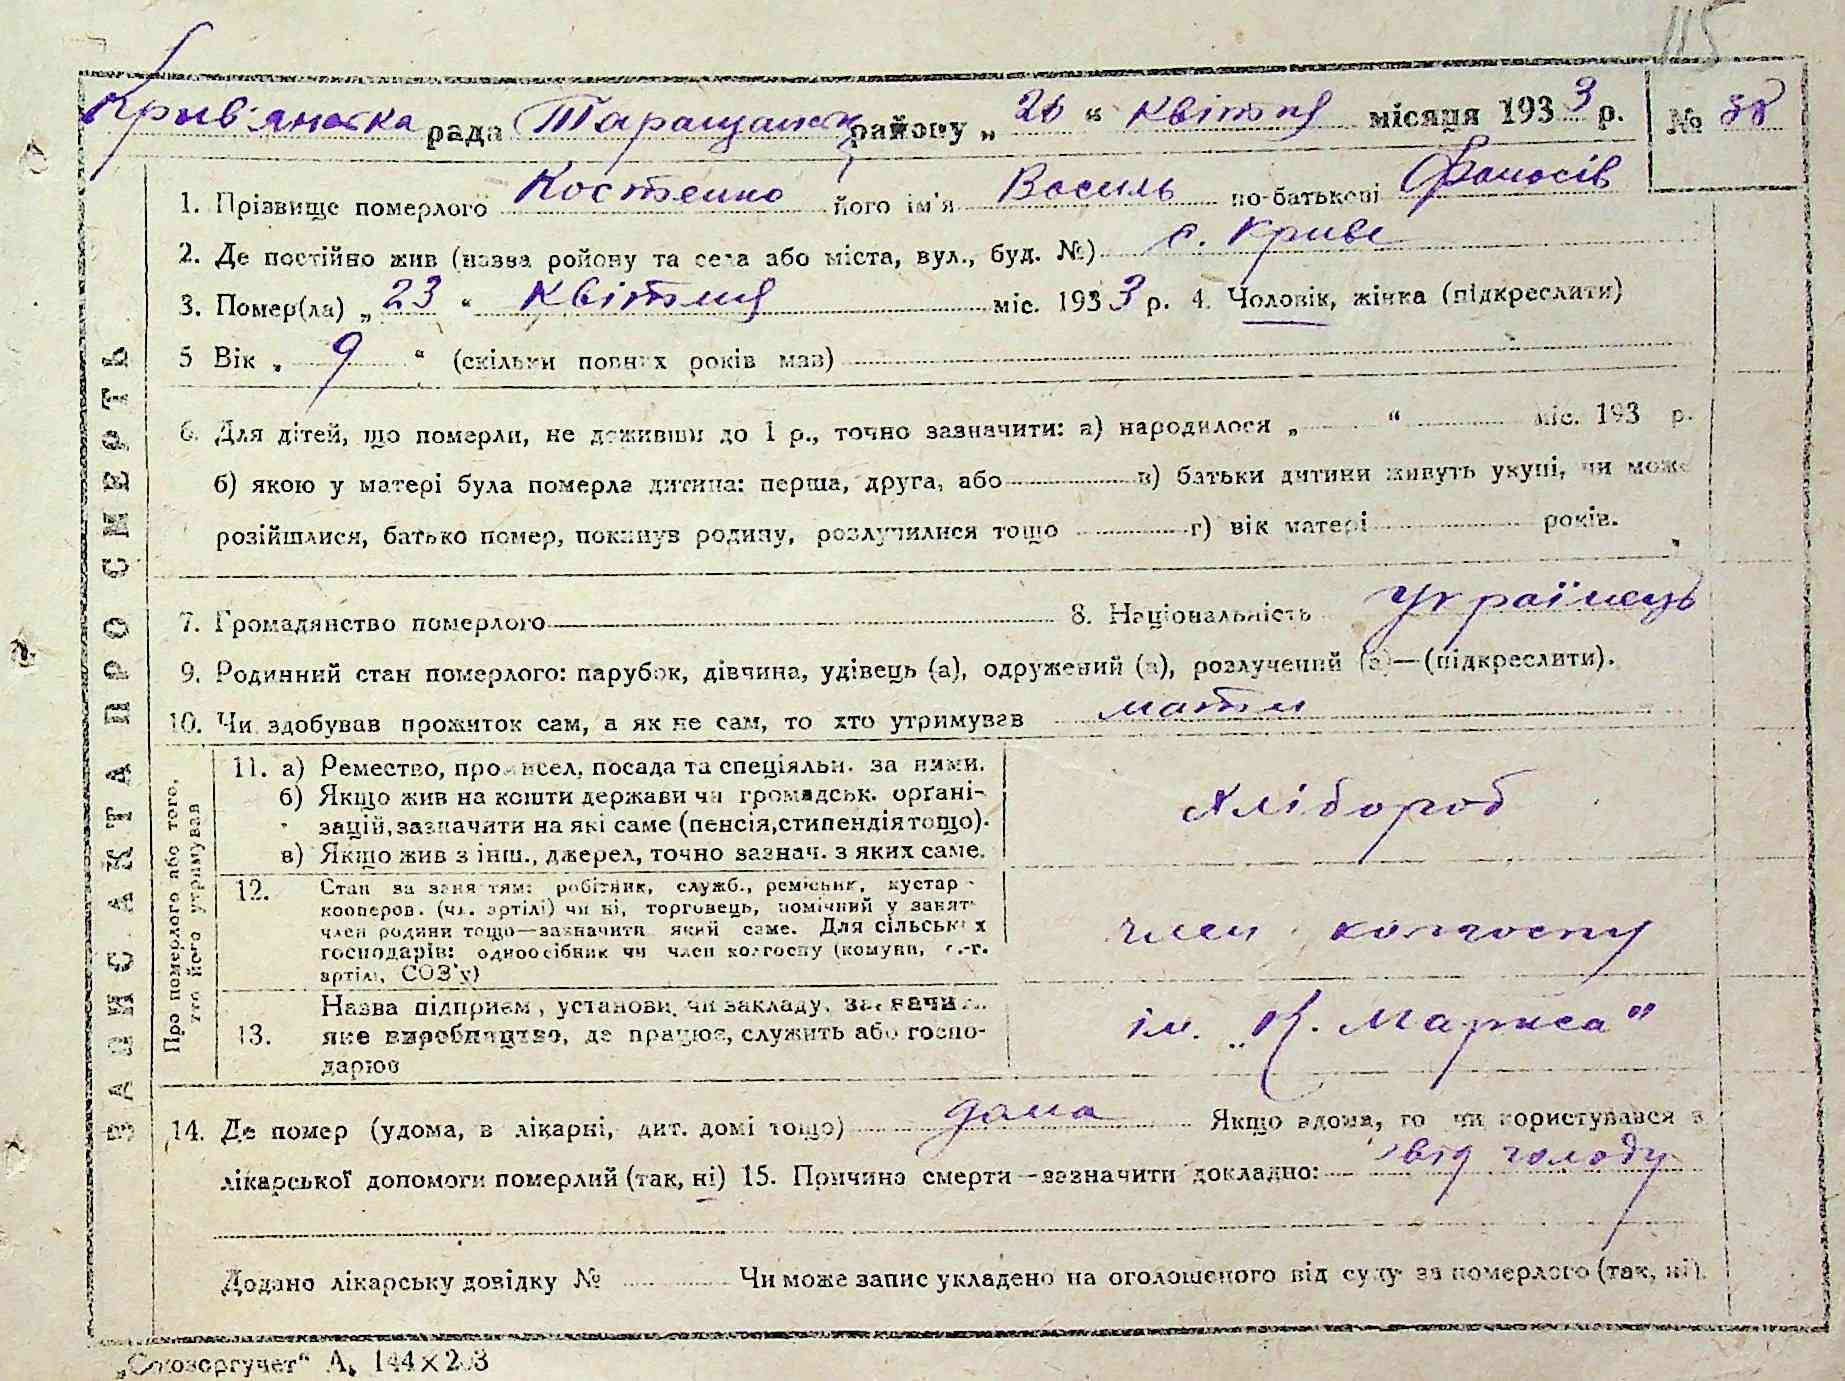 115
Крив'янська рада Таращанськ району „ 26 “ Квітня місяця 1933 р. № 88
1. Прізвище померлого Костенко його ім'я Василь по-батькові Фаносів
2. Де постійно жив (назва ройову та села або міста, вул., буд. №) с. Криве
3. Помер(ла) „ 23 “ Квітня міс. 1933 р. 4. Чоловік, жінка (підкреслити)
5 Вік „ 9 “ (скільки повних років мав)
6. Для дітей, що померли, не доживши до 1 р., точно зазначити: а) народилося „ “ міс. 193 р.
б) якою у матері була померла дитина: перша, друга, або в) батьки дитини живуть укупі, чи може
розійшлися, батько помер, покинув родину, розлучилися тощо г) вік матері років.
7. Громадянство померлого 8. Національність Українець
9. Родинний стан померлого: парубок, дівчина, удівець (а), одружений (а), розлучений (а)—(підкреслити).
10. Чи здобував прожиток сам, а як не сам, то хто утримував мати
ЗАПИС АКТА ПРО СМЕРТЬ
Про померлого або того,
хто його утримував
11. а) Ремество, промисел, посада та спеціяльн. за ними.
б) Якщо жив на кошти держави чи громадськ. органі-
зацій, зазначити на які саме (пенсія, стипендія тощо).
в) Якщо жив з інш., джерел, точно зазнач. з яких саме.
Хлібороб
12. Стан за заняттям: робітник, служб., ремісник, кустар
кооперов. (чл. артілі) чи ні, торговець, помічний у занят.
член родини тощо—зазначити який саме. Для сільських
господарів: одноосібник чи член колгоспу (комуни, с.-г.
артілі, СОЗ'у)
член колгоспу
13. Назва підприєм., установи, чи закладу, зазначити
яке виробництво, де працює, служить або госпо-
дарює
ім. „К. Маркса”
14. Де помер (удома, в лікарні, дит. домі тощо) дома Якщо вдома, то чи користувався з
лікарської допомоги померлий (так, ні) 15. Причина смерти—зазначити докладно: від голоду
Додано лікарську довідку № Чи може запис укладено на оголошеного від суду за померлого (так, ні).
„Союзоргучет“ А,